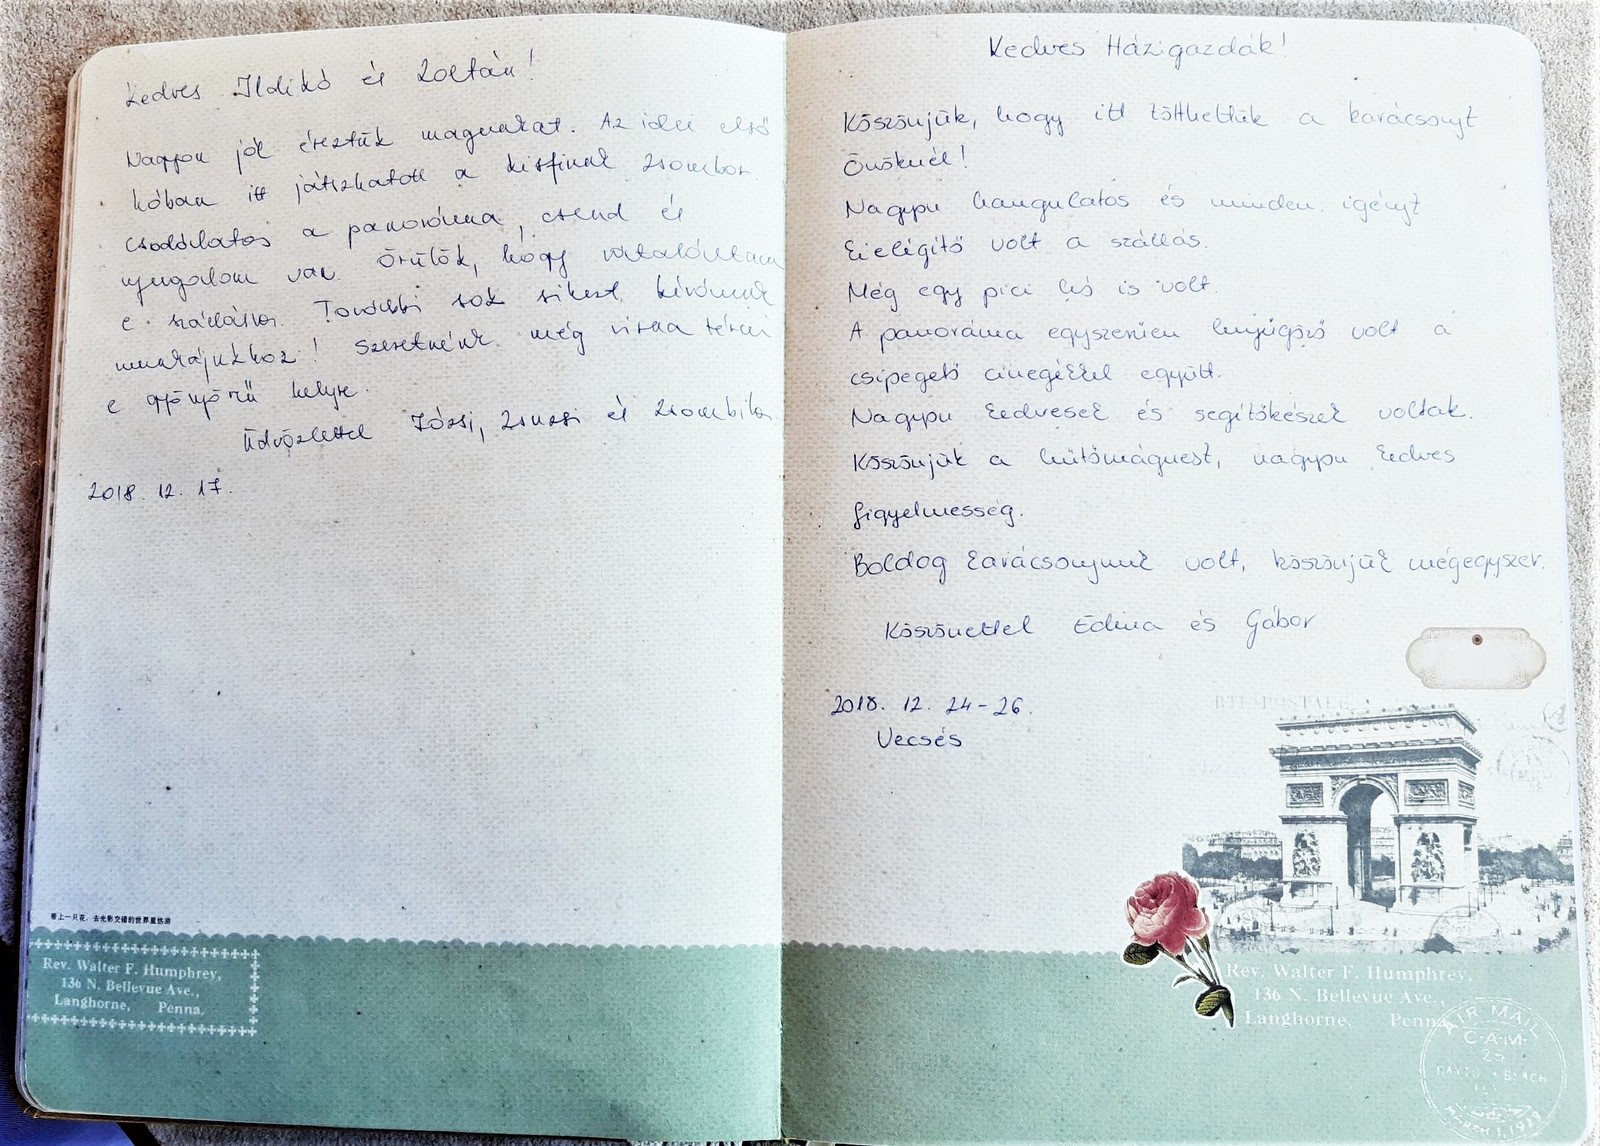 Kedves Ildikó és Zoltán!
Nagyon jól éreztük magunkat. Az idei első
hóban itt játszhatott a kisfiunk Zsombor.
Csodálatos a panoráma, csend és
nyugalom van. Örülök, hogy rátaláltam
e szállásra. További sok sikert kívánunk
munkájukhoz! Szeretnénk még vissza térni
e gyönyörű helyre.
Üdvözlettel Józsi, Zsuzsi és Zsombika
2018. 12. 17.
帶上一只花，去光影交错的世界里悠游
Rev. Walter F. Humphrey,
136 N. Bellevue Ave.,
Langhorne, Penna.
Kedves Házigazdák!
Köszönjük, hogy itt tölthettük a karácsonyt
Önöknél!
Nagyon hangulatos és minden igényt
kielégítő volt a szállás.
Még egy pici hó is volt.
A panoráma egyszerűen lenyűgöző volt a
csipegető cinegékkel együtt.
Nagyon kedvesek és segítőkészek voltak.
Köszönjük a hűtőmágnest, nagyon kedves
figyelmesség.
Boldog karácsonyunk volt, köszönjük mégegyszer.
Köszönettel Edina és Gábor
2018. 12. 24-26.
Vecsés
Rev. Walter F. Humphrey,
136 N. Bellevue Ave.,
Langhorne, Penna
AIR MAIL
C.A.M.
25
BEACH
MARCH 1, 1929